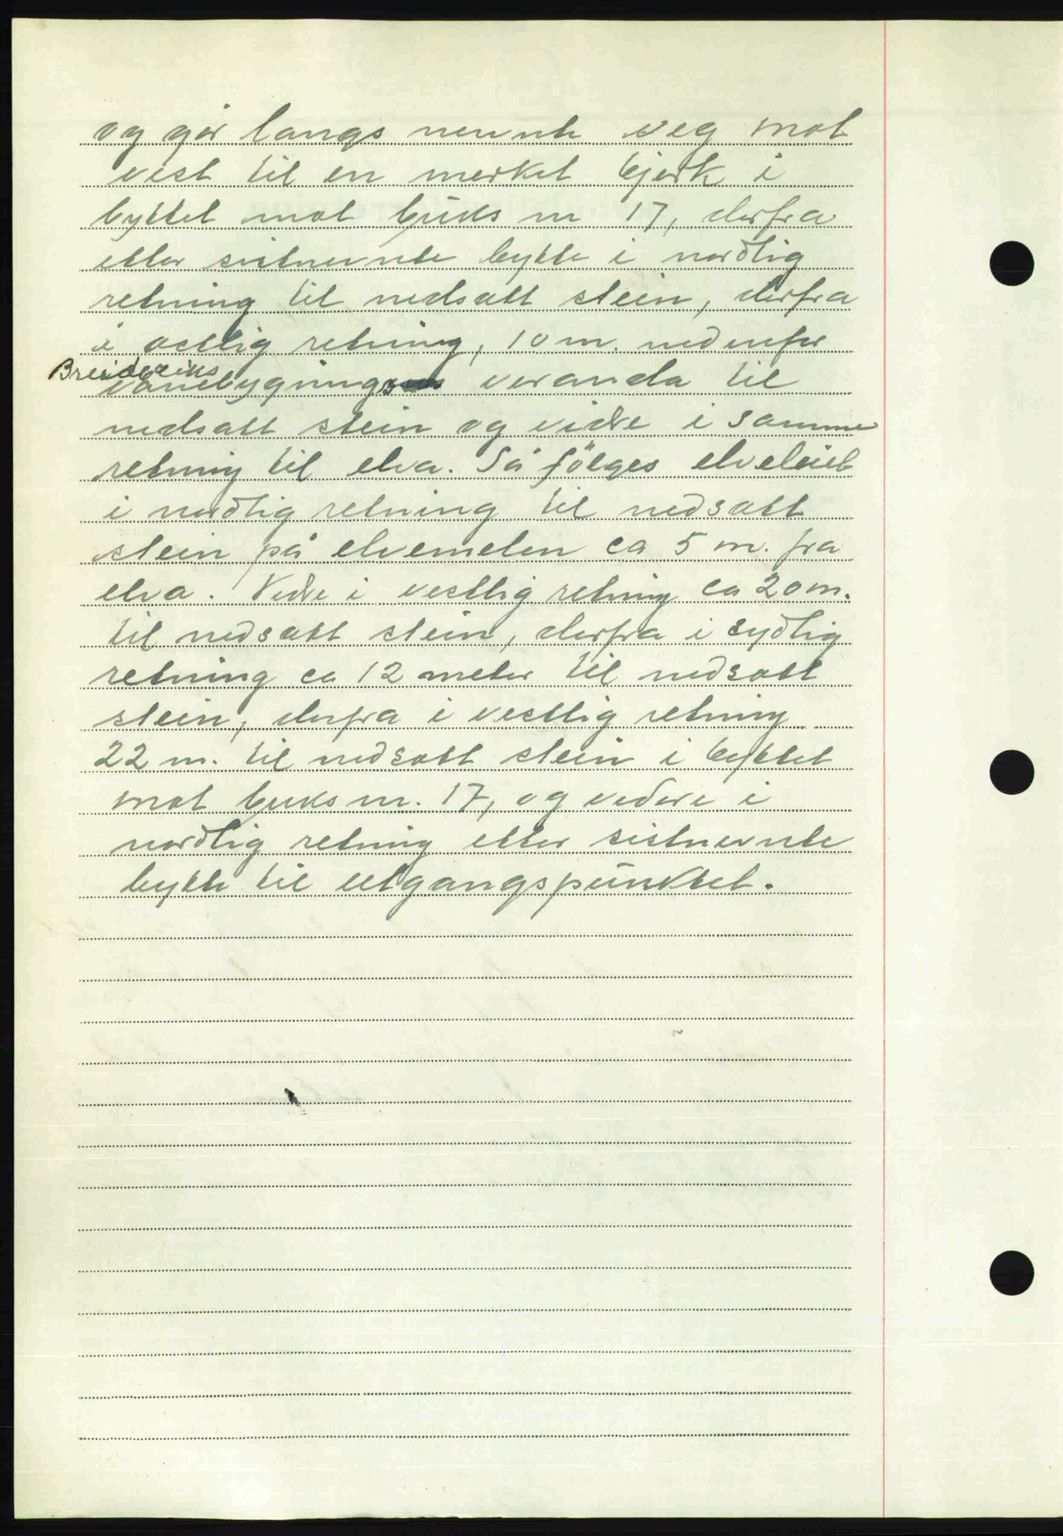 og går langs nevnte veg mot
vest til en merket bjerk i
byttet mot bruks nr 17, derfra
etter sistnevnte bytte i nordlig
retning til nedsatt stein, derfra
i vestlig retning, 10 m. nedenfor
Breidviks
vånebygnings veranda til
nedsatt stein og videre i samme
retning til elva. Så fölges elveleiet
i nordlig retning til nedsatt
stein på elvemelen ca 5 m. fra
elva. Videre i vestlig retning ca 20 m.
til nedsatt stein, derfra i sydlig
retning ca 12 meter til nedsatt
stein, derfra i vestlig retning
22 m. til nedsatt stein i byttet
mot bruks nr. 17, og videre i
nordlig retning etter sistnevnte
bytte til utgangspunktet.